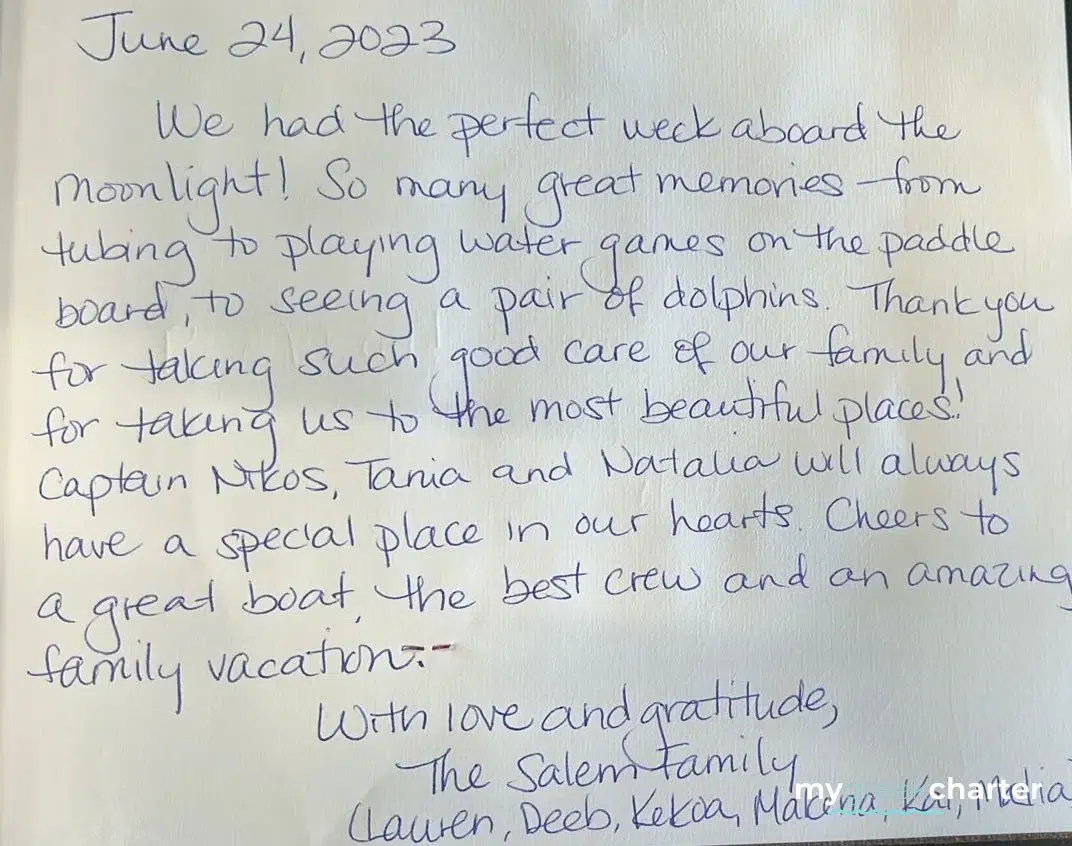 June 24, 2023
We had the perfect week aboard the
Moonlight! So many great memories - from
tubing to playing water games on the paddle
board, to seeing a pair of dolphins. Thank you
for taking such good care of our family and
for taking us to the most beautiful places!
Captain Nikos, Tania and Natalia will always
have a special place in our hearts. Cheers to
a great boat, the best crew and an amazing
family vacation.
With love and gratitude,
The Salem Family
(Lauren, Deeb, Kekoa, Makena, Kai, Malia
my charter